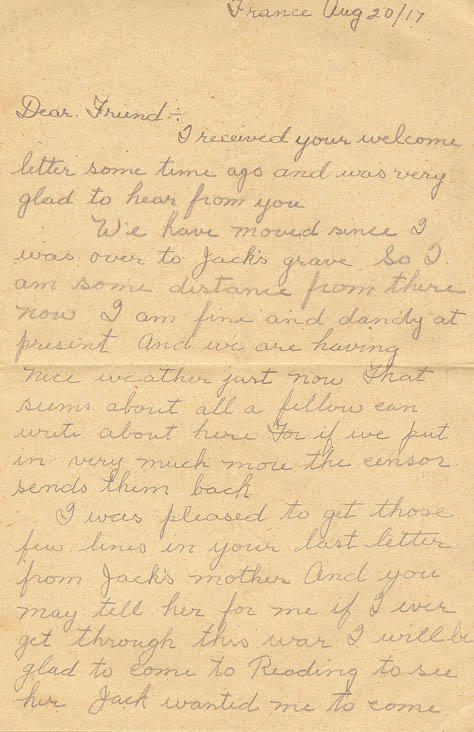 France Aug 20/17
Dear Friend ÷
I received your welcome
letter some time ago and was very
glad to hear from you
We have moved since I
was over to Jack's grave So I
am some distance from there
now I am fine and dandy at
present And we are having
nice weather just now That
seems about all a fellow can
write about here For if we put
in very much more the censor
sends them back
I was pleased to get those
few lines in your last letter
from Jack's mother And you
may tell her for me if I ever
get through this war I will be
glad to come to Reading to see
her Jack wanted me to come